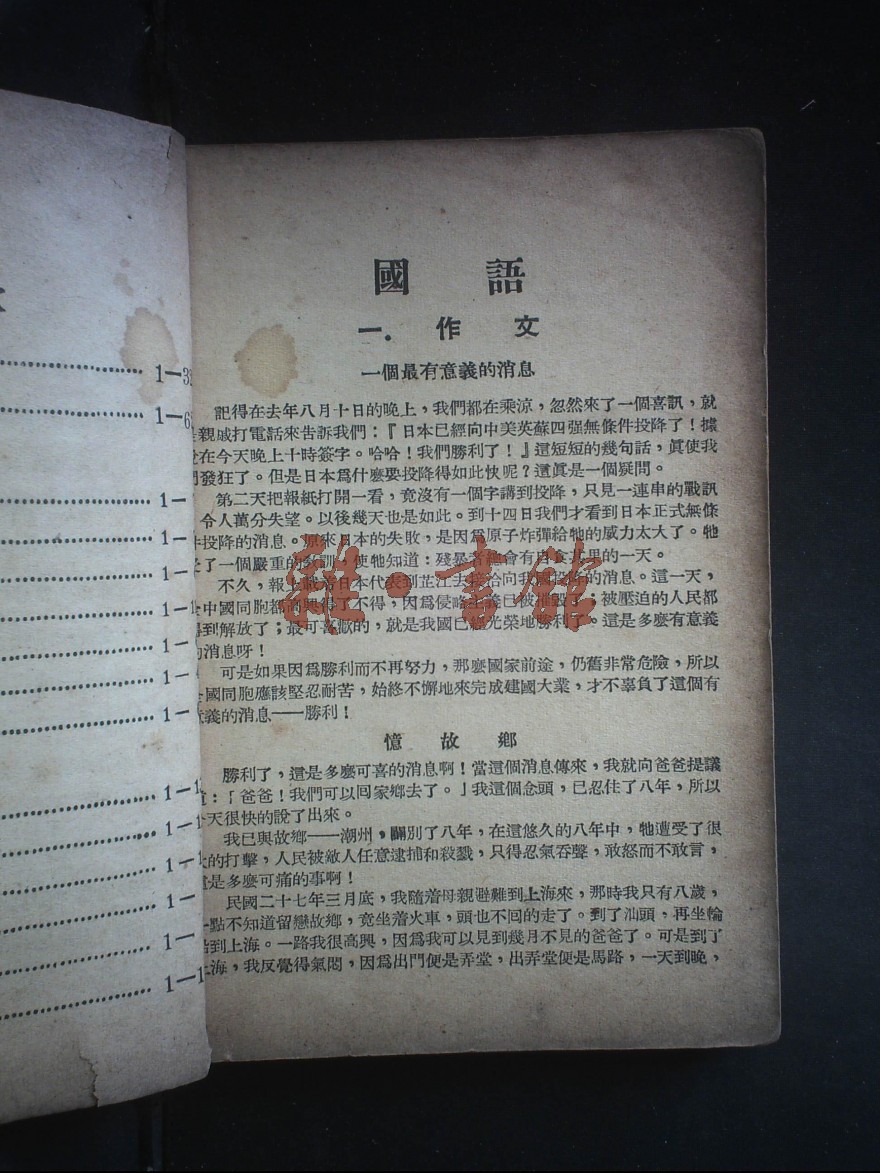 1—3
1—6
1—
1—
1—
1—1
1—
1—
1—
1—1
1—1
1—1
1—
1—
1—1
國語
一．作文
一個最有意義的消息
記得在去年八月十日的晚上，我們都在乘涼，忽然來了一個喜訊，就
親戚打電話來告訴我們：『日本已經向中美英蘇四强無條件投降了！據
在今天晚上十時簽字。哈哈！我們勝利了！』這短短的幾句話，眞使我
們發狂了。但是日本爲什麽要投降得如此快呢？這眞是一個疑問。
第二天把報紙打開一看，竟沒有一個字講到投降，只見一連串的戰訊
令人萬分失望。以後幾天也是如此。到十四日我們才看到日本正式無條
件投降的消息。原來日本的失敗，是因爲原子炸彈給牠的威力太大了。牠
受了一個嚴重的教訓，使牠知道：殘暴者總會有自食其果的一天。
不久，報上載着日本代表到芷江去接洽向我國投降的消息。這一天，
中國同胞都高興得了不得，因爲侵略主義已被摧毀了；被壓迫的人民都
得到解放了；最可喜歡的，就是我國已經光榮地勝利了。這是多麽有意義
的消息呀！
可是如果因爲勝利而不再努力，那麽國家前途，仍舊非常危險，所以
國同胞應該堅忍耐苦，始終不懈地來完成建國大業，才不辜負了這個有
意義的消息——勝利！
憶故鄉
勝利了，這是多麽可喜的消息啊！當這個消息傳來，我就向爸爸提議
：「爸爸！我們可以囘家鄉去了。」我這個念頭，已忍住了八年，所以
今天很快的說了出來。
我已與故鄉——潮州，闊別了八年，在這悠久的八年中，牠遭受了很
大的打擊，人民被敵人任意逮捕和殺戮，只得忍氣吞聲，敢怒而不敢言，
這是多麽可痛的事啊！
民國二十七年三月底，我隨着母親避難到上海來，那時我只有八歲，
一點不知道留戀故鄉，竟坐着火車，頭也不回的走了。到了汕頭，再坐輪
船到上海。一路我很高興，因爲我可以見到幾月不見的爸爸了。可是到了
上海，我反覺得氣悶，因爲出門便是弄堂，出弄堂便是馬路，一天到晚，
雜·書館